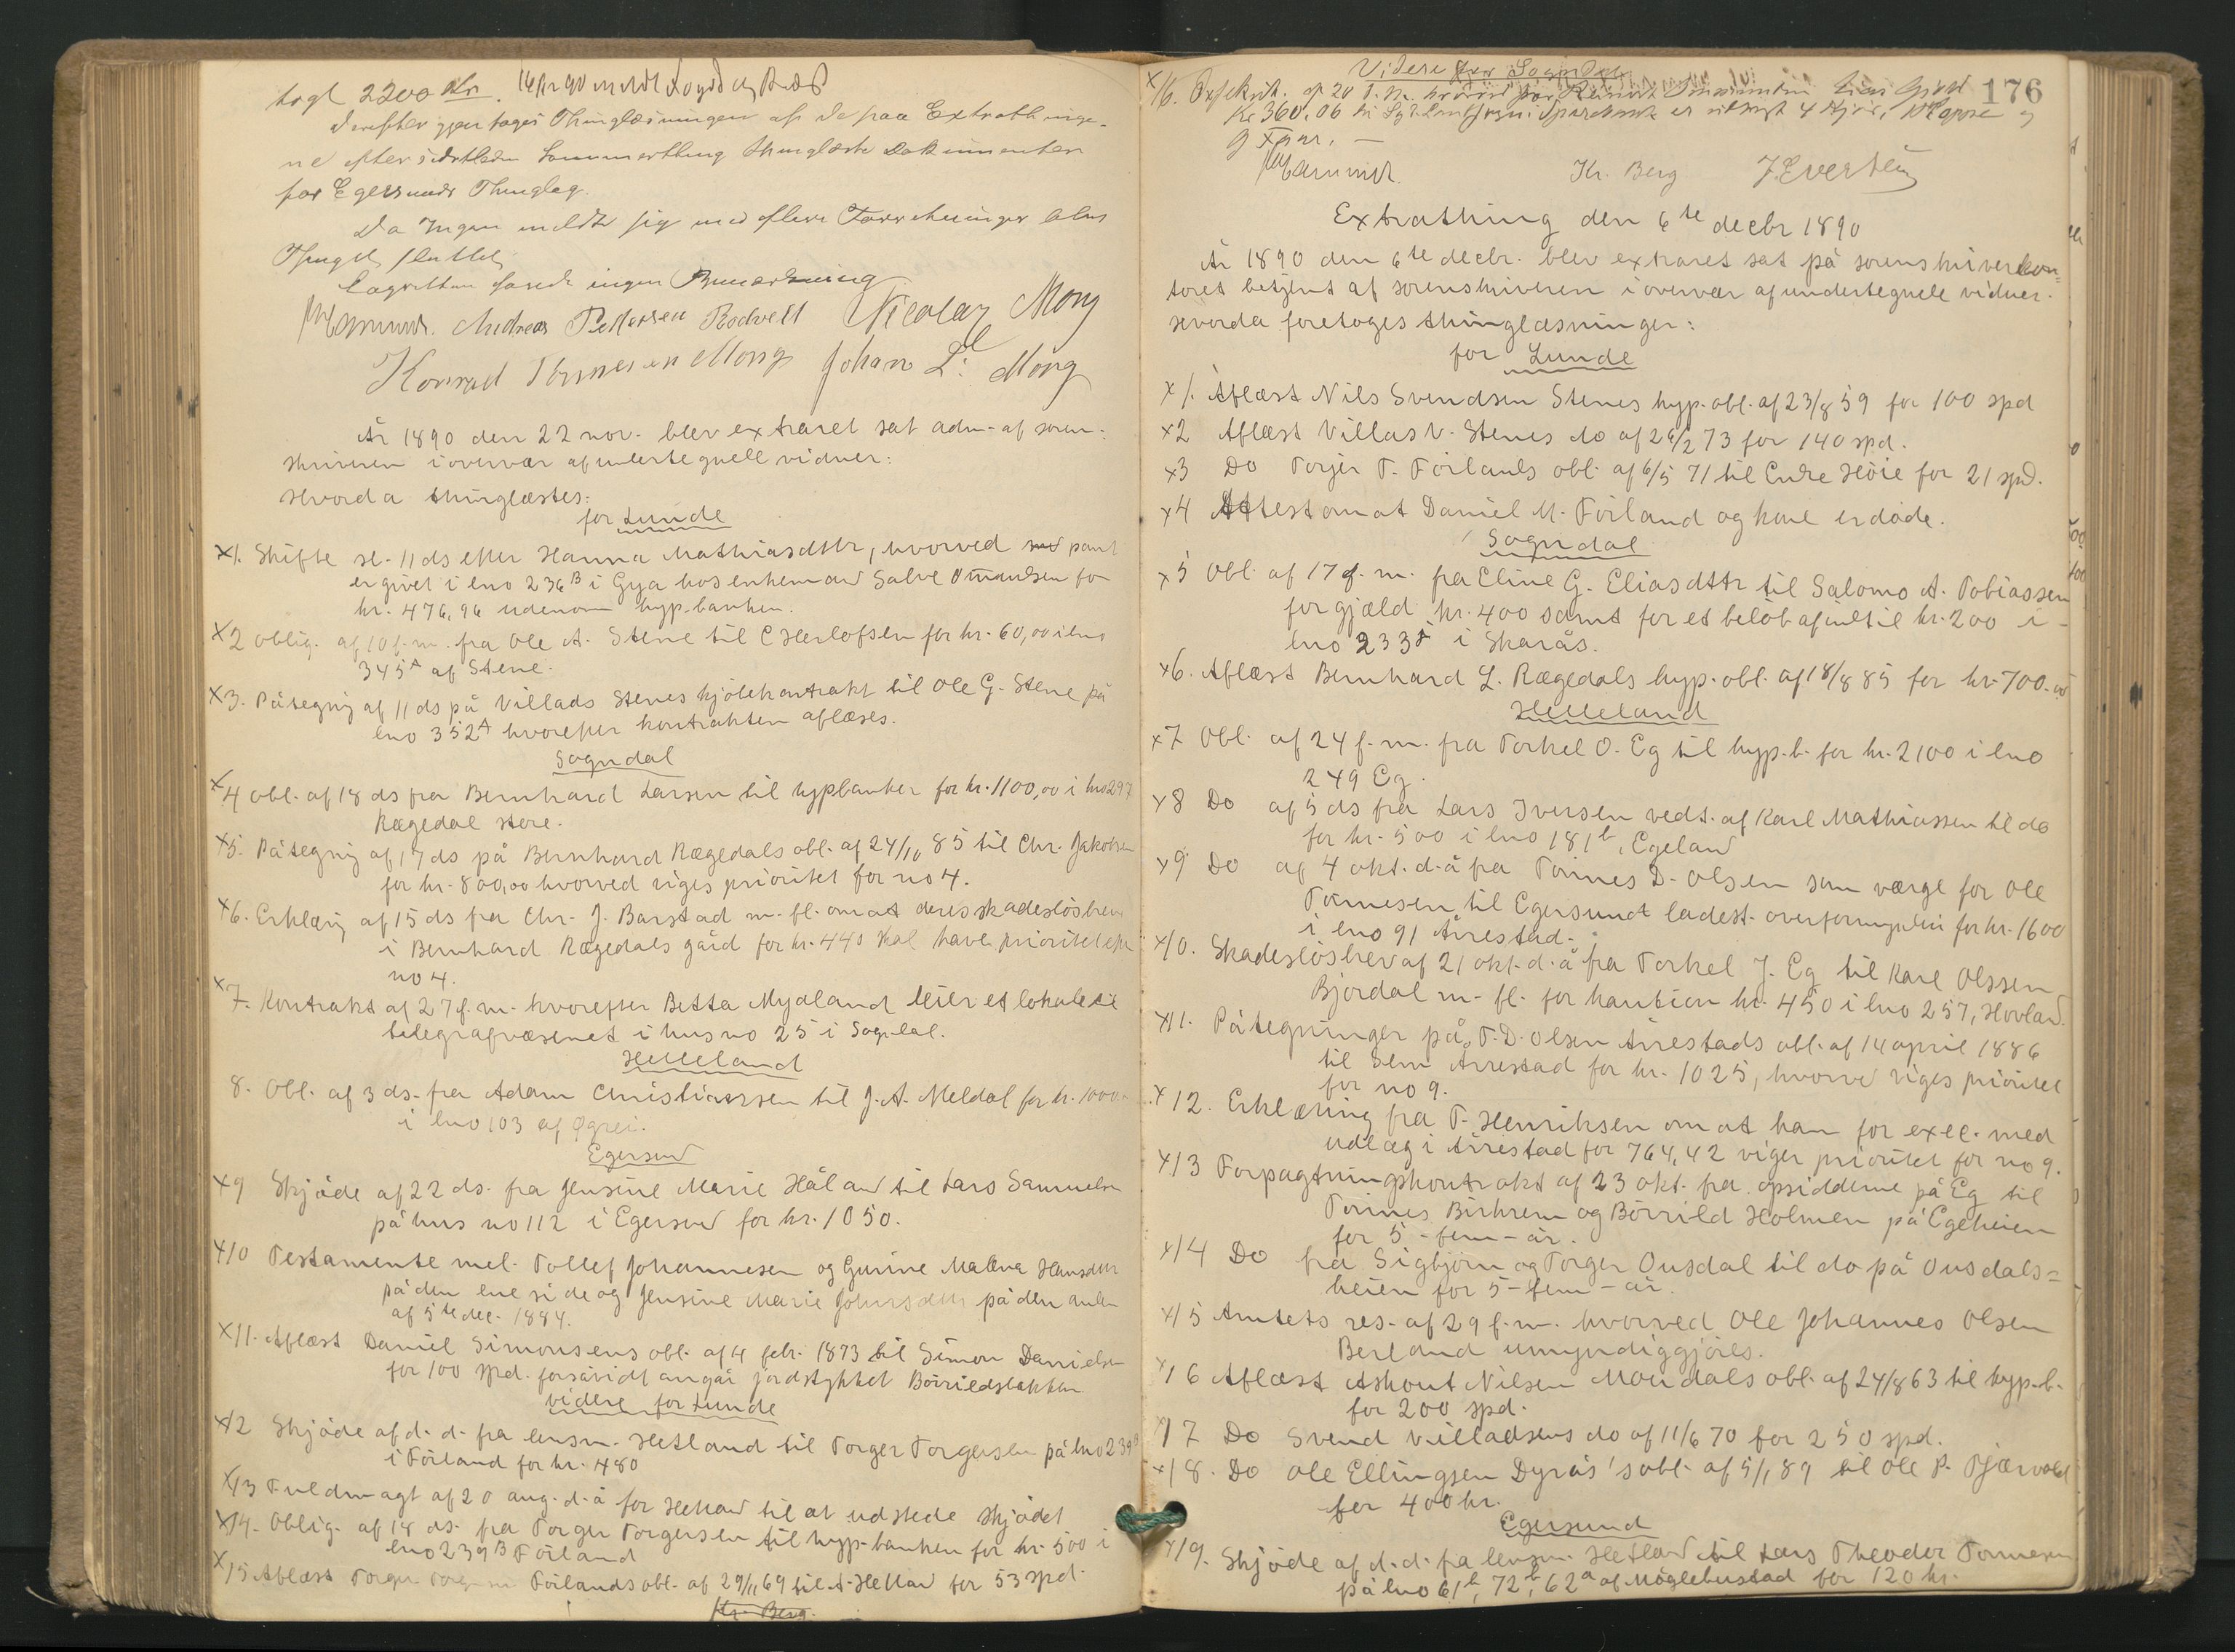 togt 2200 Kr. 16/12 90 meldt Foged og
derefter gjentoges Thinglæsningen af de paa Extrathinge-
ne efter sidstleden Sommerthing thinglæste Dokumenter
for Egersunds Thinglag.
Da Ingen meldte sig med flere Forretninger blev
Thinget sluttet
Lagretten havde ingen Bemærkning
Andreas Pettersen Rodvelt Nicolay Mong
Konrad Tønnesen Mong Johan L. Mong
År 1890 den 22 nov. blev extraret sat adm. af soren-
skriveren i overvær af undertegnede vidner:
Hvorda thinglæstes:
for Lunde
x1. Skifte sl. 11 ds efter Hanna Mathiasdttr, hvorved pant
er givet i lno 236B i Gya hos enkemand Salve Omundsen for
kr. 476,96 udenom hyp.banken.
x2 Oblig. af 10 f.m. fra Ole A. Stene til C Herlofsen for kr. 60,00 i lno
345A af Stene.
x3. Påtegning af 11 ds på Villads Stenes kjöbekontrakt til Ole G. Stene på
lno 352A hvorefter kontrakten aflæses.
Sogndal
x4 Obl. af 18 ds fra Bernhard Larsen til hypbanken for kr. 1100,00 i lno 297
Rægedal store.
x5. Påtegning af 17 ds på Bernhard Rægedals obl. af 24/10 85 til Chr. Jakobsen
for kr. 800,00 hvorved viges prioritet for no 4.
x6. Erklæring af 15 ds fra Chr. J. Barstad m. fl. om at deres skadeslösbrev
i Bernhard Rægedals gård for kr. 440 skal have prioritet efter
no 4.
x7. Kontrakt af 27 f.m. hvorefter Betta Mydland leier et lokale til
telegrafvæsenet i hus no 25 i Sogndal.
Helleland
8. Obl. af 3 ds. fra Adam Christiansen til J. A. Meldal for kr. 1000.
i lno 103 af Øgrei.
Egersund
x9 Skjöde af 22 ds. fra Jensine Marie Håland til Lars Samuelsen
på hus no 112 i Egersund for kr. 1050.
x10 Testamente mel. Tollef Johannesen og Gurine Malena Hansdttr
på den ene side og Jensine Marie Johnsdttr på den anden
af 5te dec. 1884.
x11. Aflæst Daniel Simonsens obl. af 4 febr. 1873 til Simon Danielsen
for 100 spd. forsåvidt angår jordstykket Börrildsbakken
videre for Lunde
x12 Skjöde af d. d. fra lensm. Hetland til Torger Torgersen på lno 239B
i Förland for kr. 480
x13 Fuldmagt af 20 aug. d. å for Hetland til at udstede skjödet
x14. Oblig. af 18 ds. fra Torger Torgersen til hyp-banken for kr. 500 i
lno 239B Förland
x15 Aflæst Torger Torgersen Förlands obl. af 29/11 69 til A. Hetland for 53 spd.
Kr. Berg.
Videre for Sogndal
176
x16. af 20 f. m.
Kr 360,06 til
Kr. Berg J Evertsen
Extrathing den 6te decbr 1890
År 1890 den 6te decbr. blev extraret sat på sorenskriverkon-
toret betjent af sorenskriveren i overvær af undertegnede vidner.
Hvorda foretoges thinglæsninger:
for Lunde
x1. Aflæst Nils Svendsen Stenes hyp. obl. af 23/8 59 for 100 spd
x2 Aflæst Villas V. Stenes do af 26/2 73 for 140 spd.
x3 Do Torger T. Förlands obl. af 6/5 71 til Endre Höie for 21 spd.
x4 Attest om at Daniel M. Förland og kone er döde.
Sogndal
x5 Obl. af 17 f. m. fra Eline G. Eliasdttr til Salomo A. Tobiassen
for gjæld kr. 400 samt for et belöb af indtil kr. 200 i
lno 233 i Skarås.
x6. Aflæst Bernhard L. Rægedals hyp. obl. af 18/8 85 for kr. 700.00
Helleland
x7 Obl. af 24 f. m. fra Torkel O. Eg til hyp.b. for kr. 2100 i lno
249 Eg.
x8 Do af 5 ds fra Lars Iversen vedt. af Karl Mathiassen til do
for kr. 500 i lno 181b, Egeland
x9 Do af 4 okt. d. å fra Tönnes D. Olsen som værge for Ole
Tönnesen til Egersund ladest. overformynderi for kr. 1600
i lno 91 Årrestad.
x10. Skadeslösbrev af 21 okt. d. å fra Torkel J. Eg til Karl Olssen
Bjordal m. fl. for kaution kr. 450 i lno 257, Hovland.
x11. Påtegninger på T. D. Olsen Årrestads obl. af 14 april 1886
til Sem Årrestad for kr. 1025, hvorved viges prioritet
for no 9.
x12. Erklæring fra T. Henriksen om at han for exec. med
udlæg i Årrestad for 764,42 viger prioritet for no 9.
x13 Forpagtningskontrakt af 23 okt. fra opsidderne på Eg til
Tönnes Birkrem og Börrild Holmen på Egeheien
for 5 - fem - år.
x14 Do fra Sigbjörn og Torger Ousdal til do på Ousdals=
heien for 5 - fem - år.
x15 Amtets res. af 29 f. m. hvorved Ole Johannes Olsen
Berland umyndiggjöres.
x16 Aflæst Askout Nilsen Moudals obl. af 24/8 63 til hyp.b.
for 200 spd.
17 Do Svend Villadsens do af 11/6 70 for 250 spd.
x18. Do Ole Ellingsen Dyrås's obl. af 5/1 89 til Ole P. Bjærvold
for 400 kr.
Egersund
x19. Skjöde af d. d. fra lensm. Hetland til Lars Theodor Tönnesen
på lno 61b, 72b, 62a af Möglebustad for 120 kr.